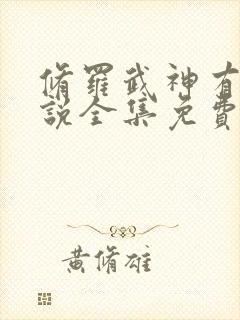 脩羅武神有
說全集免費
黃脩雄